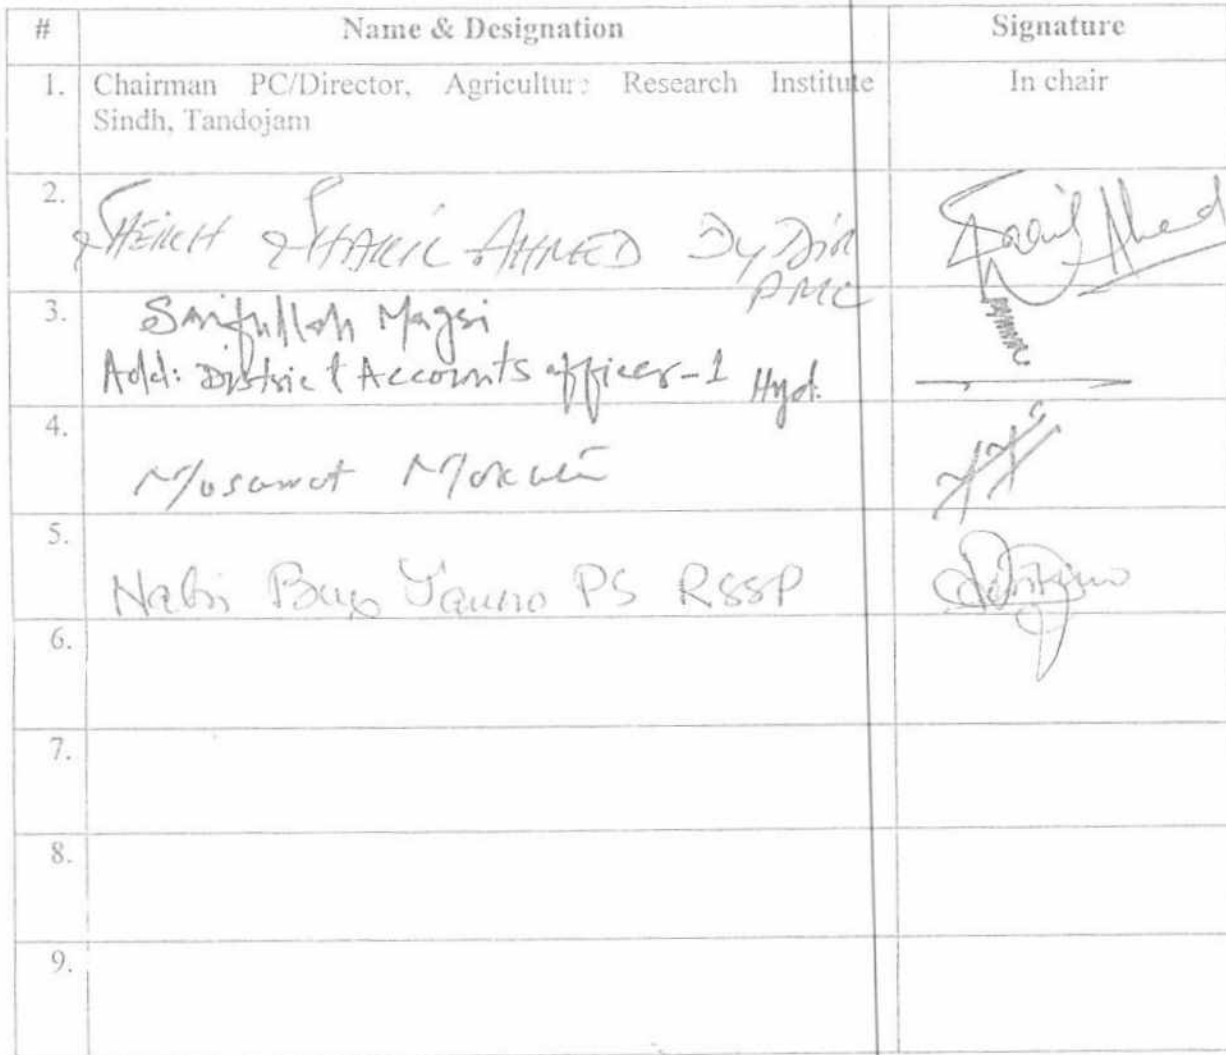 # Name & Designation Signature
1. Chairman PC/Director, Agriculture Research Institute In chair
Sindh, Tandojam
2. SHEIKH SHAKIL AHMED Dy Dir
PMC
3. Saifullah Magsi
Add: District Accounts officer-1 Hyd.
4. Musawat
5. Nabi Bux PS RSSP
6.
7.
8.
9.